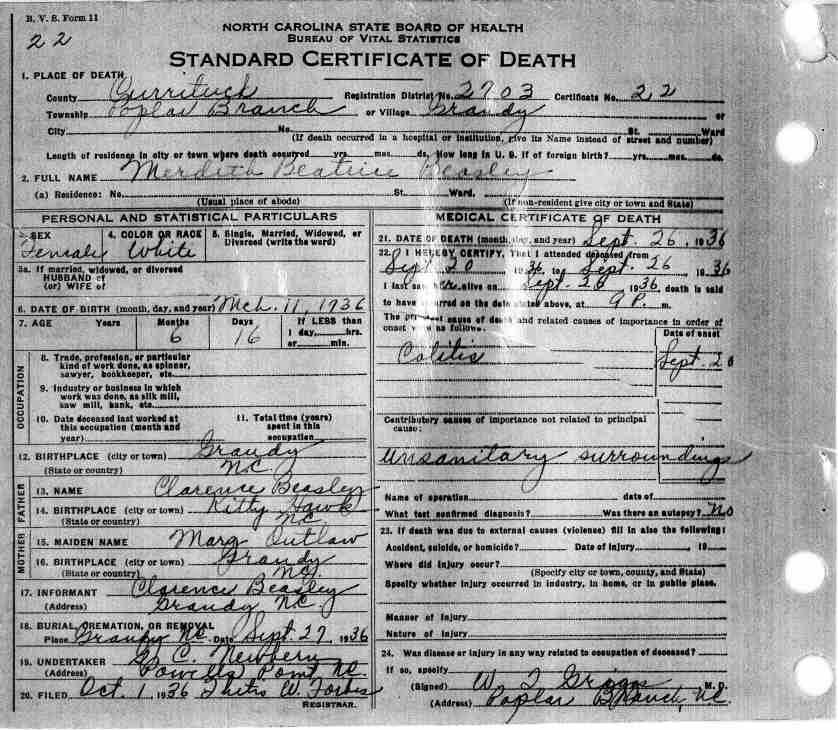 B. V. S. Form 11
22
NORTH CAROLINA STATE BOARD OF HEALTH
BUREAU OF VITAL STATISTICS
STANDARD CERTIFICATE OF DEATH
1. PLACE OF DEATH
County Currituck Registration District No. 2703 Certificate No. 22
Township Poplar Branch or Village Grandy or
City No. St. Ward
(If death occurred in a hospital or institution, give its Name instead of street and number)
Length of residence in city or town where death occurred yrs. mos. ds. How long in U. S. if of foreign birth? yrs. mos. ds.
2. FULL NAME Merdith Beatrice Beasley
(a) Residence: No. St. Ward.
(Usual place of abode) (If non-resident give city or town and State)
PERSONAL AND STATISTICAL PARTICULARS
3. SEX 4. COLOR OR RACE 5. Single, Married, Widowed, or Divorced (write the word)
Female White
5a. If married, widowed, or divorced
HUSBAND of
(or) WIFE of
6. DATE OF BIRTH (month, day, and year) Mch. 11, 1936
7. AGE Years Months Days If LESS than
6 16 1 day, hrs.
or min.
OCCUPATION
8. Trade, profession, or particular
kind of work done, as spinner,
sawyer, bookkeeper, etc.
9. Industry or business in which
work was done, as silk mill,
saw mill, bank, etc.
10. Date deceased last worked at
this occupation (month and
year)
11. Total time (years)
spent in this
occupation
12. BIRTHPLACE (city or town) Grandy
(State or country) N.C.
FATHER
13. NAME Clarence Beasley
14. BIRTHPLACE (city or town) Kitty Hawk
(State or country) NC
MOTHER
15. MAIDEN NAME Mary Outlaw
16. BIRTHPLACE (city or town) Grandy
(State or country) NC.
17. INFORMANT Clarence Beasley
(Address) Grandy N.C.
18. BURIAL, CREMATION, OR REMOVAL
Place Grandy NC. Date Sept. 27, 1936
19. UNDERTAKER C. Newbern
(Address) Powells Point NC.
20. FILED Oct 1 1936 W. Forbes
REGISTRAR.
MEDICAL CERTIFICATE OF DEATH
21. DATE OF DEATH (month, day, and year) Sept. 26, 1936
22. I HEREBY CERTIFY, That I attended deceased from
Sept 20 1936, to Sept. 26 1936
I last saw her alive on Sept. 26 1936, death is said
to have occurred on the date stated above, at 9 P. m.
The principal cause of death and related causes of importance in order of
onset were as follows:
Date of onset
Colitis Sept. 20
Contributory causes of importance not related to principal
cause:
Unsanitary surroundings
Name of operation date of
What test confirmed diagnosis? Was there an autopsy? No
23. If death was due to external causes (violence) fill in also the following:
Accident, suicide, or homicide? Date of injury 19
Where did injury occur?
(Specify city or town, county, and State)
Specify whether injury occurred in industry, in home, or in public place.
Manner of Injury
Nature of Injury
24. Was disease or injury in any way related to occupation of deceased?
If so, specify
(Signed) W. T. Griggs M. D.
(Address) Poplar Branch, N.C.